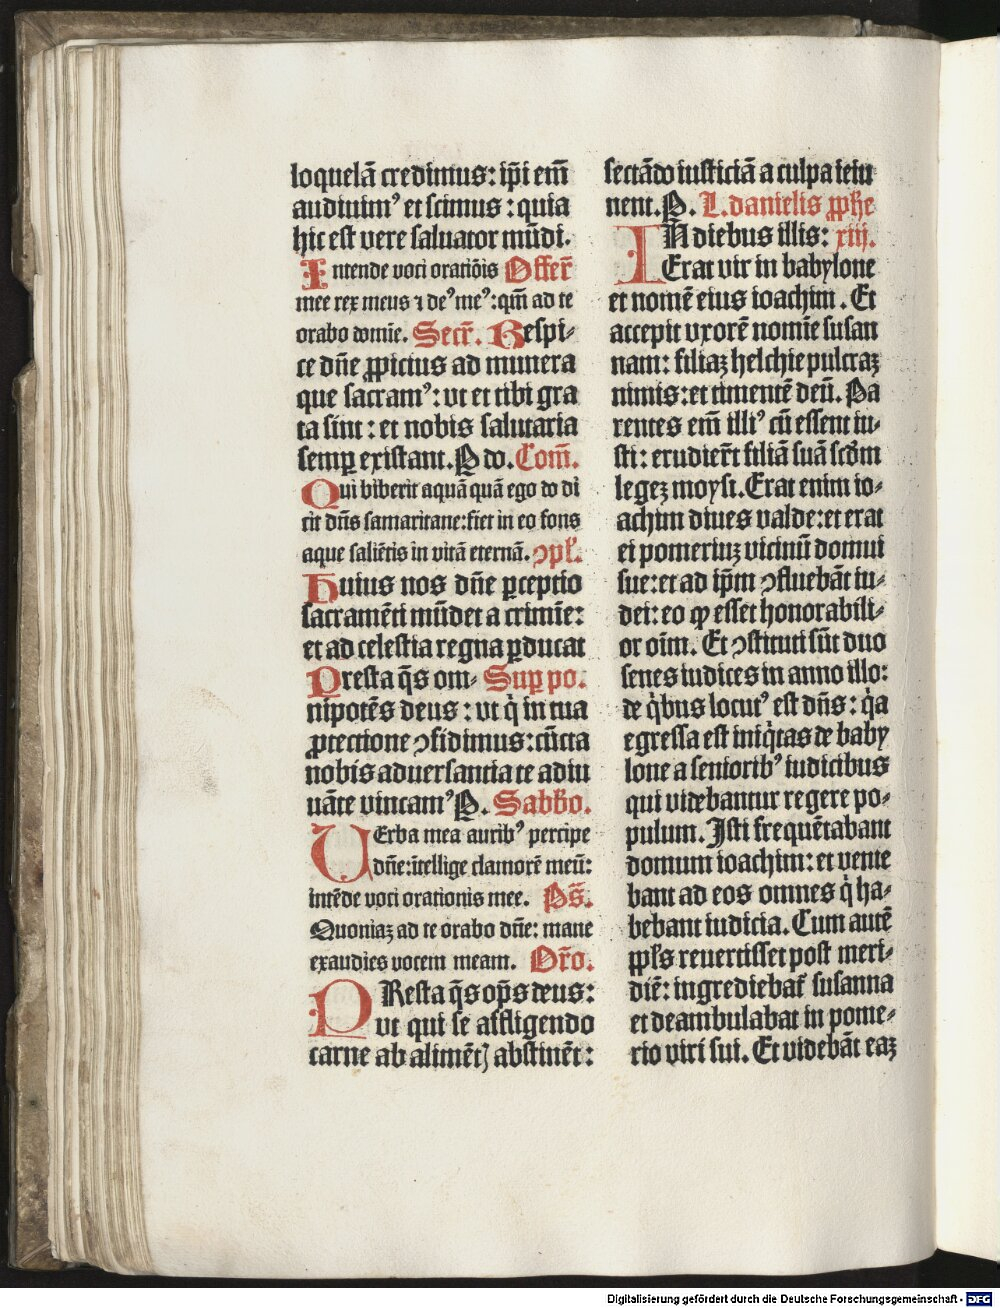 loquelā credimus: ip̄i em̄
audiuim⁹ et scimus : quia
hic est vere saluator mūdi.
Intende voci oratiōis Offer̄
mee rex meus ⁊ de⁹ me⁹ : qm̄ ad te
orabo domīe. Secr̄. Respi-
ce dn̄e ꝓpicius ad munera
que sacram⁹ : vt et tibi gra
ta sint : et nobis salutaria
semꝑ existant. P do. Com̄.
Qui biberit aquā quā ego do di
cit dn̄s samaritane: fiet in eo fons
aque saliētis in vitā eternā. ↄpl̄.
Huius nos dn̄e ꝑceptio
sacramēti mūdet a crimīe:
et ad celestia regna ꝑducat
Presta q̄s om- Suꝑ po.
nipotēs deus : vt q̇ in tua
ꝓtectione ↄfidimus : cūcta
nobis aduersantia te adiu
uāte vincam⁹ P. Sabb̄o.
VErba mea aurib⁹ percipe
dn̄e: ītellige clamorē meū:
intēde voci orationis mee. Ps̄.
Quoniaꝫ ad te orabo dn̄e: mane
exaudies vocem meam. Or̄o.
PResta q̄s op̄s deus:
vt qui se affligendo
carne ab alimēt⁊ abstinēt:
sectādo iusticiā a culpa ieiu
nent. P. L. danielis ꝓph̄e
IN diebus illis: xiij.
Erat vir in babylone
et nomē eius ioachim . Et
accepit vxorē nomīe susan
nam: filiaꝫ helchie pulcraꝫ
nimis: et timentē deū. Pa
rentes em̄ illi⁹ cū essent iu-
sti: erudier̄t filiā suā scd̄m
legeꝫ moysi. Erat enim io-
achim diues valde: et erat
ei pomeriuꝫ vicinū domui
sue: et ad ip̄m ↄfluebāt iu-
dei: eo ꝙ esset honorabili-
or oīm. Et ↄstituti sūt duo
senes iudices in anno illo:
de q̇bus locut⁹ est dn̄s : q̇a
egressa est iniq̇tas de baby
lone a seniorib⁹ iudicibus
qui videbantur regere po-
pulum. Isti frequētabant
domum ioachim: et venie
bant ad eos omnes q̇ ha-
bebant iudicia. Cum autē
ꝓpl̄s reuertisset post meri-
diē: ingrediebat᷑ susanna
et deambulabat in pome-
rio viri sui. Et videbāt eaꝫ
Digitalisierung gefördert durch die Deutsche Forschungsgemeinschaft - DFG